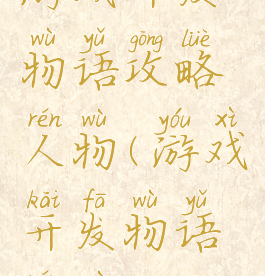 wù yǔ gōng lüè
物语攻略
rén wù yóu xì
人物(游戏
kāi fā wù yǔ
开发物语